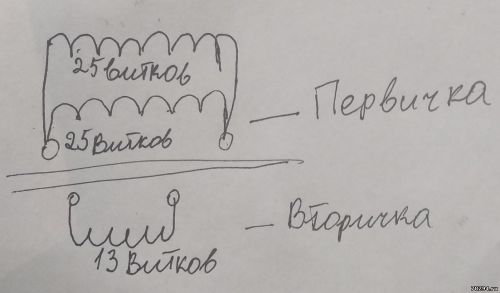 25 витков
25 Витков
Первичка
Вторичка
13 Витков